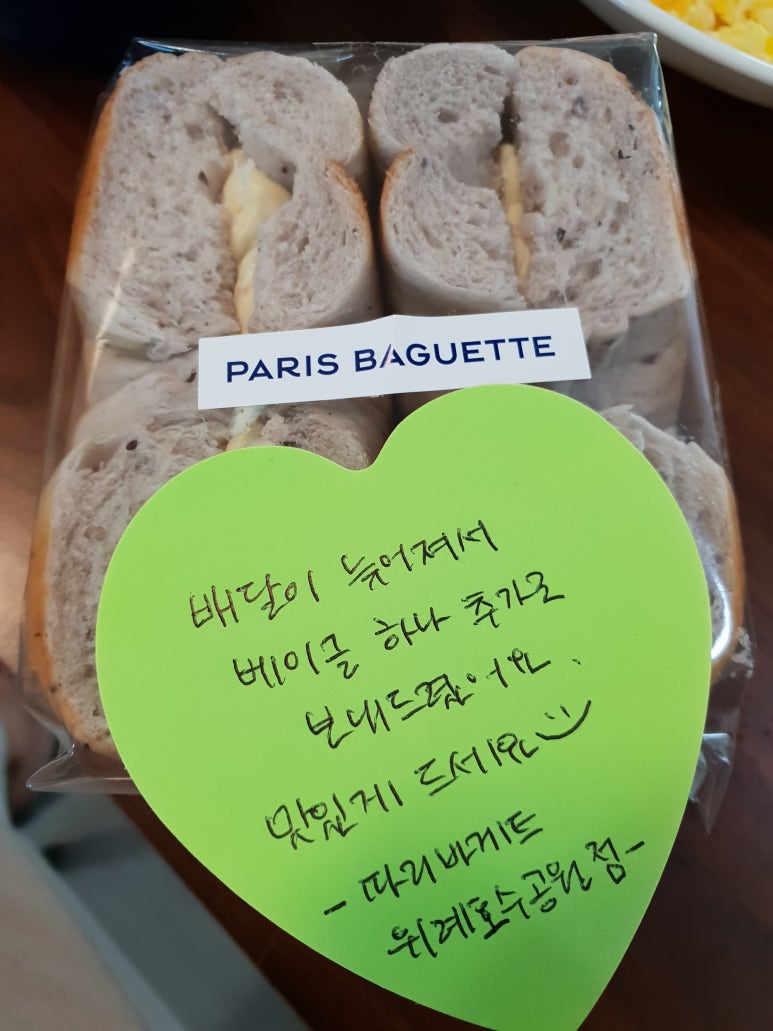 PARIS BAGUETTE
배달이 늦어져서
베이글 하나 추가로
보내드렸어요.
맛있게 드세요
- 파리바게트
위례호수공원점 -